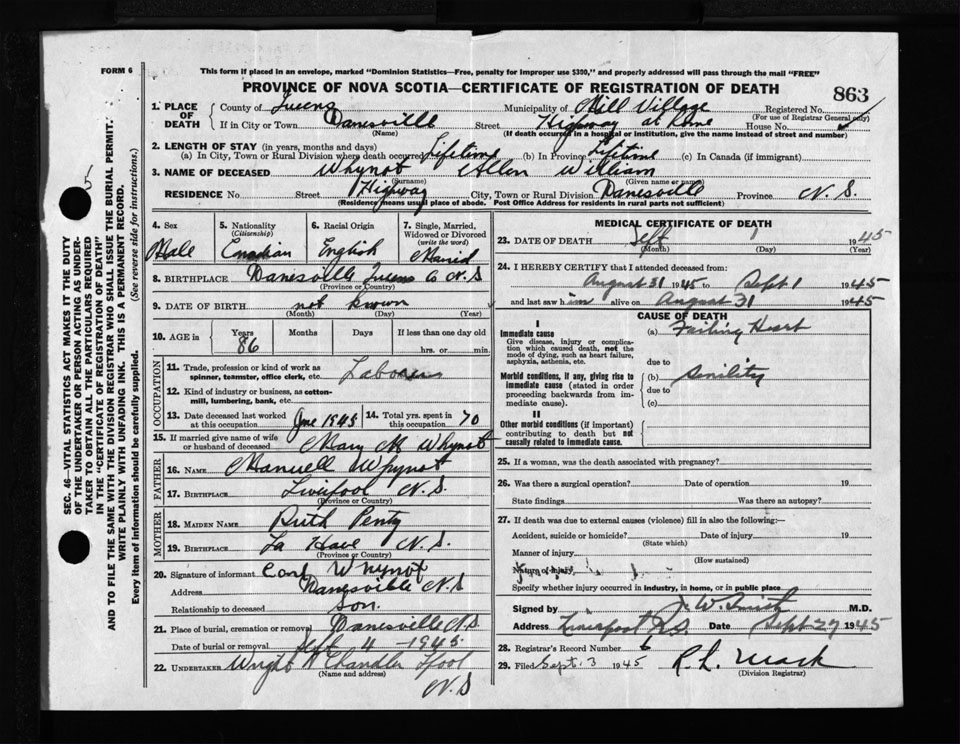 FORM 6
This form if placed in an envelope, marked "Dominion Statistics—Free, penalty for improper use $300," and properly addressed will pass through the mail "FREE"
PROVINCE OF NOVA SCOTIA—CERTIFICATE OF REGISTRATION OF DEATH
863
1. PLACE OF DEATH
County of Queens Municipality of Mill Village Registered No.
(For use of Registrar General only)
If in City or Town Danesville Street Highway at Home House No.
(Name) (If death occurred in a hospital or institution, give the name instead of street and number)
2. LENGTH OF STAY (in years, months and days)
(a) In City, Town or Rural Division where death occurred Lifetime (b) In Province Lifetime (c) In Canada (if immigrant)
3. NAME OF DECEASED Whynot Allen William
(Surname) (Given name or names)
RESIDENCE No Street Highway City, Town or Rural Division Danesville Province N.S.
(Residence means usual place of abode. Post Office Address for residents in rural parts not sufficient)
4. Sex 5. Nationality (Citizenship) 6. Racial Origin 7. Single, Married, Widowed or Divorced (write the word)
Male Canadian English Maried
8. BIRTHPLACE Danesville Queens Co N.S
(Province or Country)
9. DATE OF BIRTH not known
(Month) (Day) (Year)
10. AGE in Years Months Days If less than one day old
86 hrs. or min.
OCCUPATION
11. Trade, profession or kind of work as spinner, teamster, office clerk, etc.
12. Kind of industry or business, as cotton-mill, lumbering, bank, etc.
13. Date deceased last worked at this occupation June 1945 14. Total yrs. spent in this occupation 70
15. If married give name of wife or husband of deceased Mary M Whynot
FATHER
16. NAME Whynot
17. BIRTHPLACE Liverpool N.S.
(Province or Country)
MOTHER
18. MAIDEN NAME Ruth Penty
19. BIRTHPLACE La Have N.S.
(Province or Country)
20. Signature of informant Carl Whynot
Address Danesville N.S
Relationship to deceased Son.
21. Place of burial, cremation or removal Danesville N.S.
Date of burial or removal Sept 4 - 1945
22. UNDERTAKER Wright N Chandler Lpool
(Name and address)
N.S
MEDICAL CERTIFICATE OF DEATH
23. DATE OF DEATH Sept 1 1945
(Month) (Day) (Year)
24. I HEREBY CERTIFY that I attended deceased from:
August 31 1945 to Sept 1 1945
and last saw him alive on August 31 1945
CAUSE OF DEATH
I
Immediate cause (a) Failing Heart
Give disease, injury or complication which caused death, not the mode of dying, such as heart failure, asphyxia, asthenia, etc.
due to
Morbid conditions, if any, giving rise to immediate cause (stated in order proceeding backwards from immediate cause).
(b) Senility
due to
(c)
II
Other morbid conditions (if important) contributing to death but not causally related to immediate cause.
25. If a woman, was the death associated with pregnancy?
26. Was there a surgical operation? Date of operation 19
State findings Was there an autopsy?
27. If death was due to external causes (violence) fill in also the following:—
Accident, suicide or homicide? Date of injury 19
(State which)
Manner of injury
(How sustained)
Nature of injury
Specify whether injury occurred in industry, in home, or in public place
Signed by J. W. Smith M.D.
Address Liverpool N.S. Date Sept 27 1945
28. Registrar's Record Number 6
29. Filed Sept. 3 1945 R. L. Mack
(Division Registrar)
SEC. 46—VITAL STATISTICS ACT MAKES IT THE DUTY
OF THE UNDERTAKER OR PERSON ACTING AS UNDER-
TAKER TO OBTAIN ALL THE PARTICULARS REQUIRED
IN THE "CERTIFICATE OF REGISTRATION OF DEATH"
AND TO FILE THE SAME WITH THE DIVISION REGISTRAR WHO SHALL ISSUE THE BURIAL PERMIT.
WRITE PLAINLY WITH UNFADING INK. THIS IS A PERMANENT RECORD.
Every item of information should be carefully supplied. (See reverse side for instructions.)